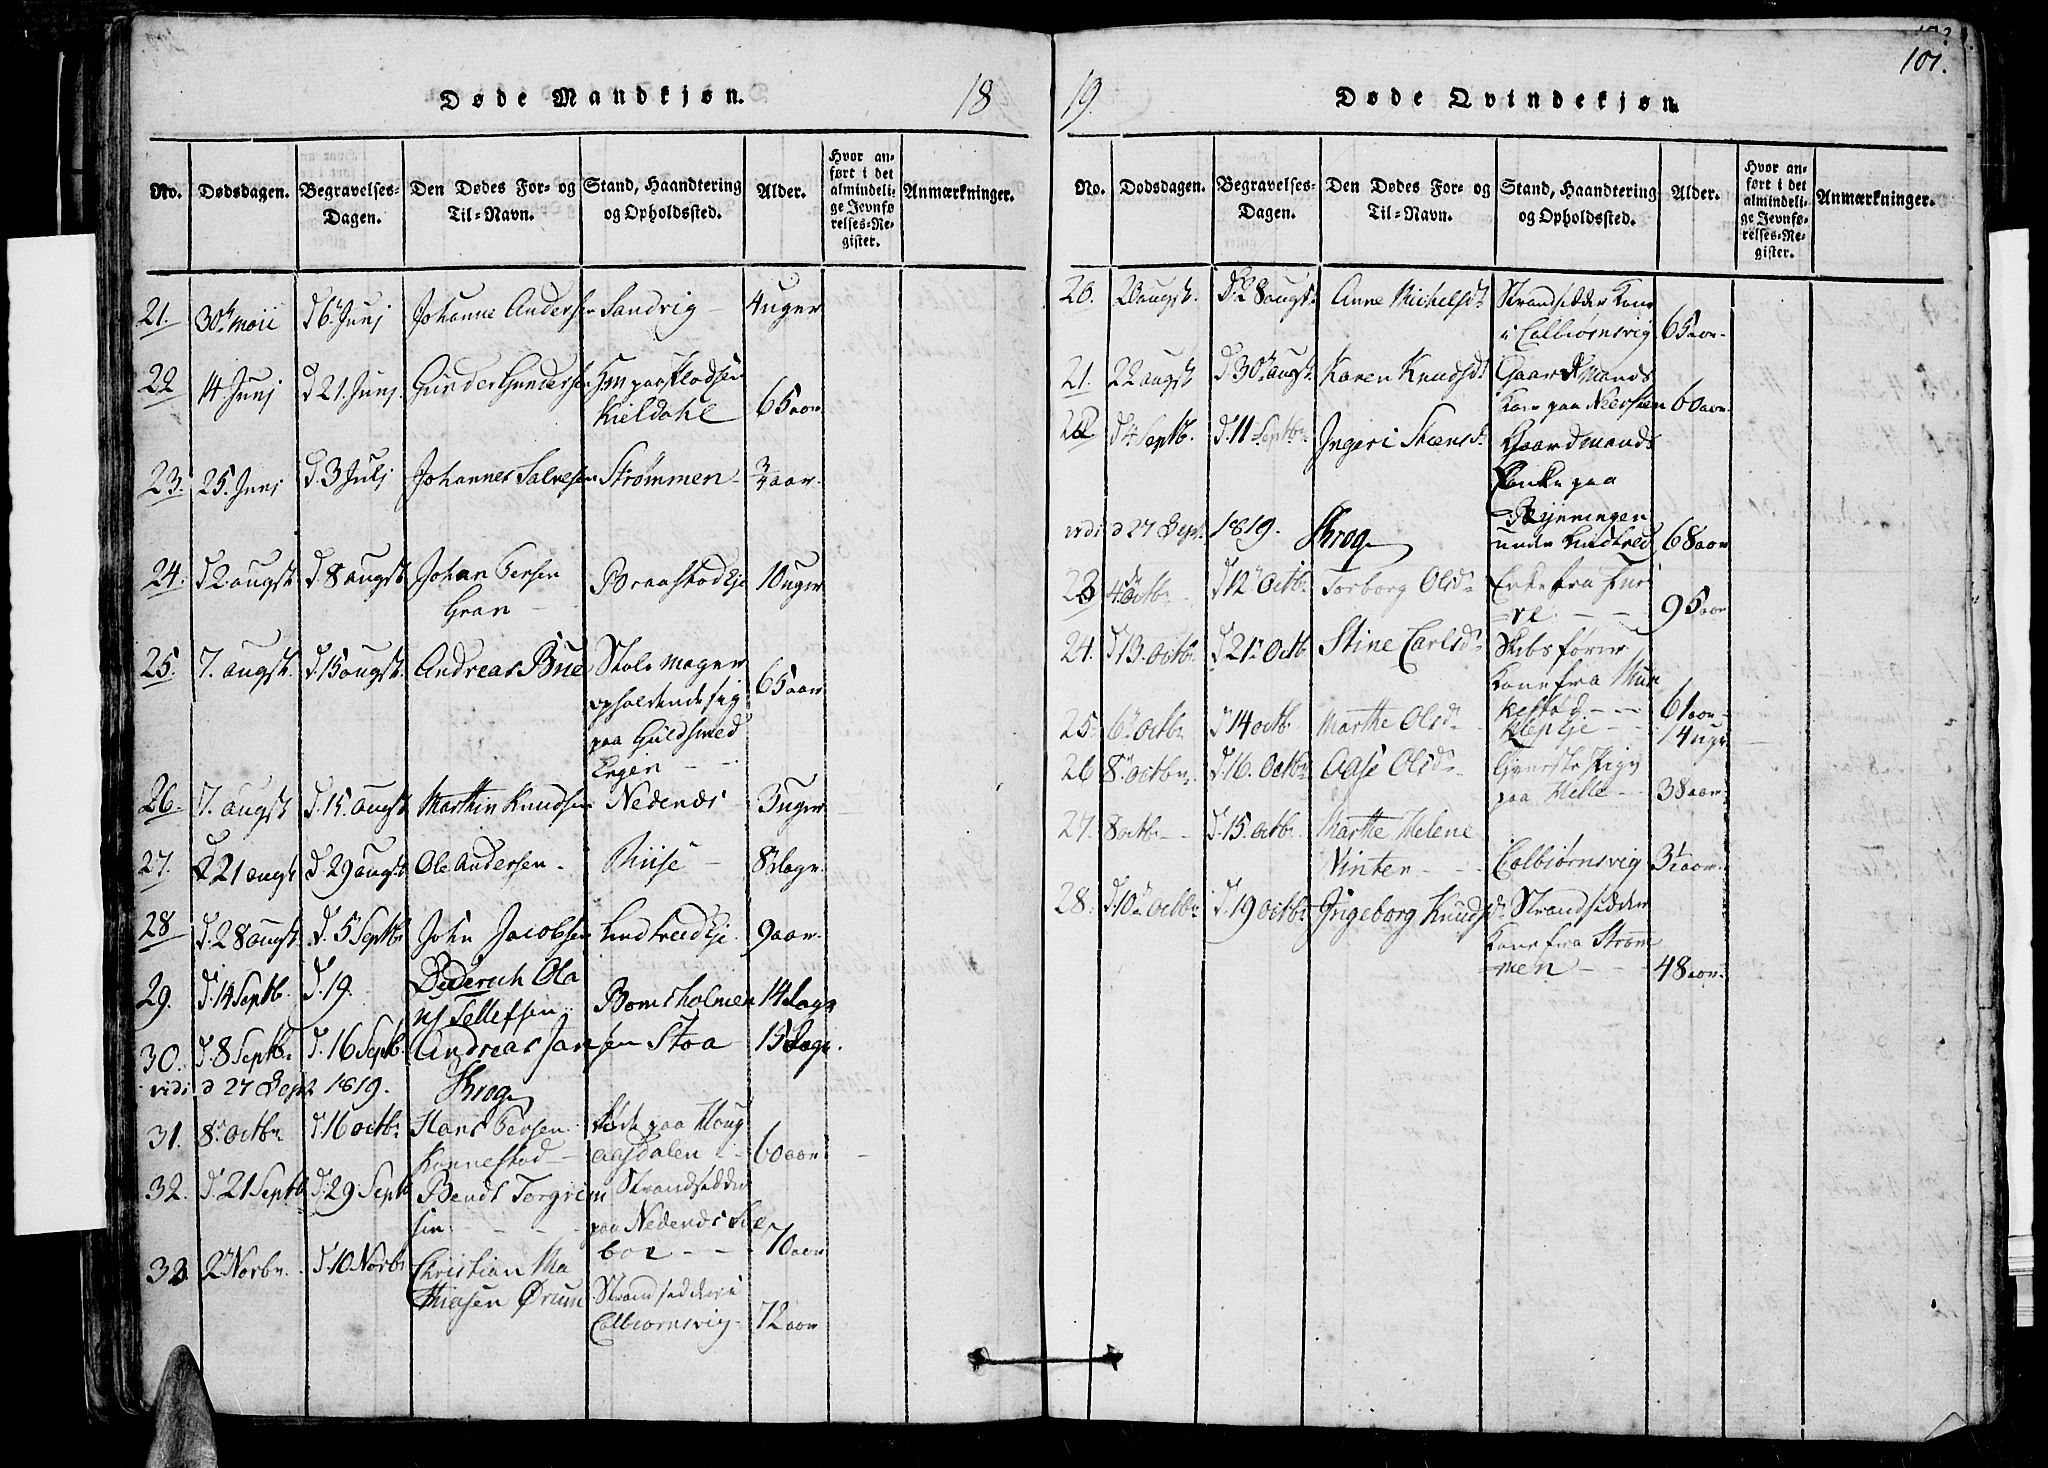 101.
Døde Mandkjøn. 18
No. Dødsdagen. Begravelses-Dagen. Den Dødes For- og Til-Navn. Stand, Haandtering og Opholdssted. Alder. Hvor anført i det almindelige Jevnførelses-Register. Anmærkninger.
21. 30te maii d 6te Junj Johanne Andersen Sandvig 4 uger
22 14 Junj d 21. Junj Gunder Gundersen
Kieldahl 65 aar
23. 25. Junj d 3 Julj Johannes Salvesen Strømmen 3/4 aar
24. d 2 augst d. 8 augst Johan Persen Braastad Eje 10 uger
Gran
25. 7. augst. d. 15 augst. Andreas Bue Stolemager
opholdende sig 65 aar
paa Guldsmed
Engen
26. 7. augst d. 15. augst Marthin Knudsen Nedenæs 3 uger
27. d 21 augst d. 29 augst Ole Andersen Riise 8 Dage
28 d. 28 augst d. 5 Septbr John Jacobsen Lindtveed Eje 9 aar
29. d. 14 Septb. d. 19. Diderich Ola
us Tellefsen Bomsholmen 14 dage
30. d. 8 Septbr d. 16 Septb. Andreas Jansen Stoa 15 Dage.
vidi d 27 Sept 1819. Krog
31. 8 octbr d 16 octbr Hans Persen paa Houg
Konnestad aasdalen 60 aar
32. d. 21 Septb d. 29 Septb Bendt Torgrim Strandsidder
sen paa Nedenæs
boe 70 aar
33 2 Novbr. d. 10 Novbr Christian Ma
thiasen Ørum Strandsidder i
Colbiørnsvig 72 aar
19. Døde Qvindekjøn
No. Dødsdagen. Begravelses-Dagen. Den Dødes For- og Til-Navn. Stand, Haandtering og Opholdssted. Alder. Hvor anført i det almindelige Jevnførelses-Register. Anmærkninger.
20. 20 augst. d. 28 augst Anne Michelsdr Strandsidder Kone
i Colbiørnsvig 65 aar
21. 22 augst d. 30te augst. Karen Knudsdr Gaardmands
Kone paa Neersteen 60 aar
22 d 4 Septb. d. 11 Septbr Ingeri Steensdr Gaardmands
Enke paa
Rynningen
under Lindtved 68 aar
vidi d 27 Sept. 1819. Krog
23 4 Octbr d 12 Octbr Torborg Olsdr Enke fra Fur
re 95 aar
24. d 13. Octbr d 21 Octb Stine Carlsdr Skibsfører
Kone fra Mun
kestad 61 aar
25 6 Octbr d 14 octbr Marthe Olsdr Klep Eje 14 uger
26 8 octbr d. 16. Octbr Aase Olsdr Tjeneste Pige
paa Helle 38 aar
27. 8 octbr d. 15. octbr. Marthe Helene
Vinter Colbiørnsvig 3 1/2 aar
28. d. 10 octbr d. 19 octbr Ingeborg Knudsdr Strandsidder
Kone fra Strøm
men 48 aar